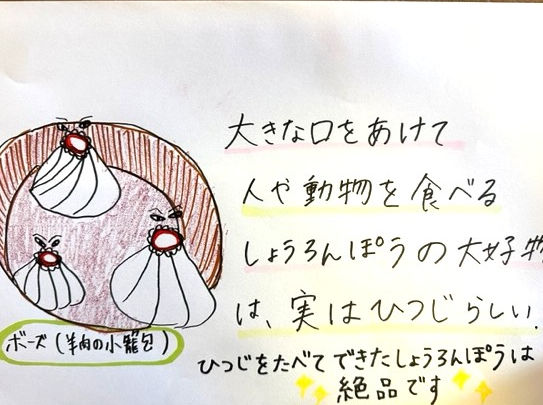 大きな口をあけて
人や動物を食べる
しょうろんぽうの大好物
は、実はひつじらしい.
ボーズ(羊肉の小籠包)
ひつじをたべてできたしょうろんぽうは
絶品です